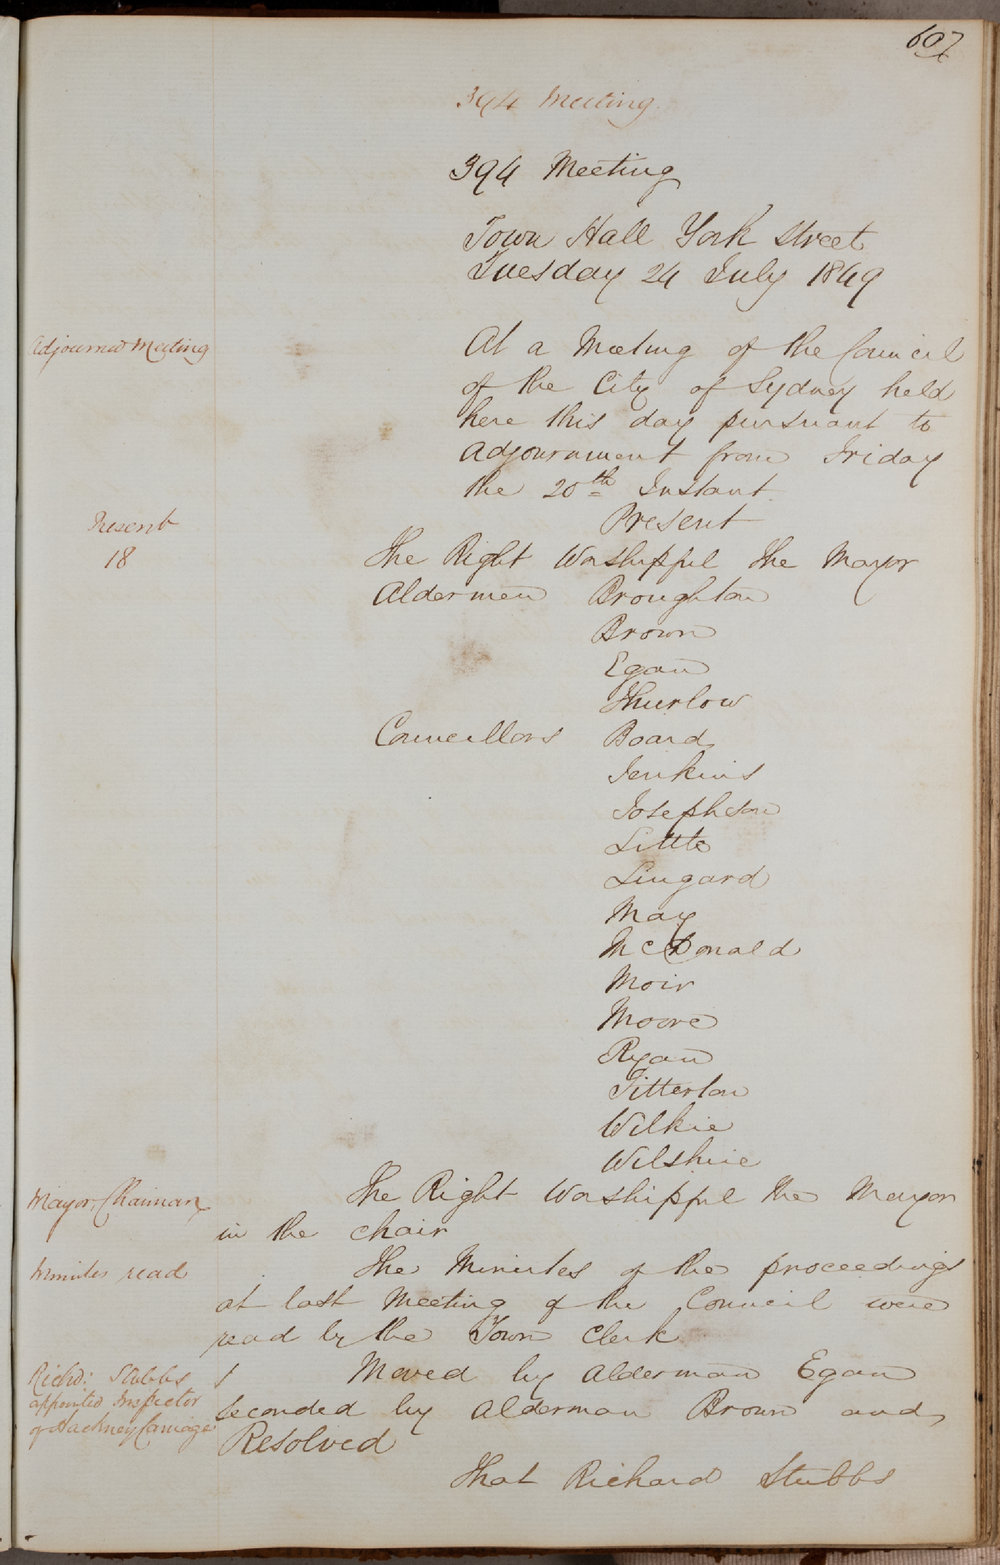 607
394 Meeting
394 Meeting
Town Hall York Street
Tuesday 24 July 1849
Adjourned Meeting
At a Meeting of the Council
of the City of Sydney held
here this day pursuant to
adjournment from Friday
the 20th Instant
Present
Present
18
The Right Worshipful The Mayor
Aldermen Broughton
Brown
Egan
Thurlow
Councillors Board
Jenkins
Josephson
Little
Lingard
May
McDonald
Moir
Moore
Ryan
Titterton
Wilkie
Wilshire
Mayor, Chairman
The Right Worshipful the Mayor
in the chair
Minutes read
The Minutes of the proceedings
at last Meeting of the Council were
read by the Town Clerk
Richd: Stubbs
appointed Inspector
of Hackney Carriages
1 Moved by Alderman Egan
seconded by Alderman Brown and
Resolved
That Richard Stubbs